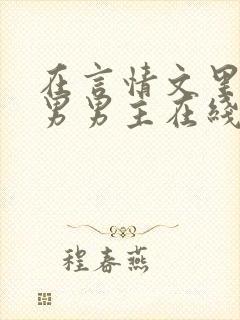 在言情文里
男男主在线
程春燕